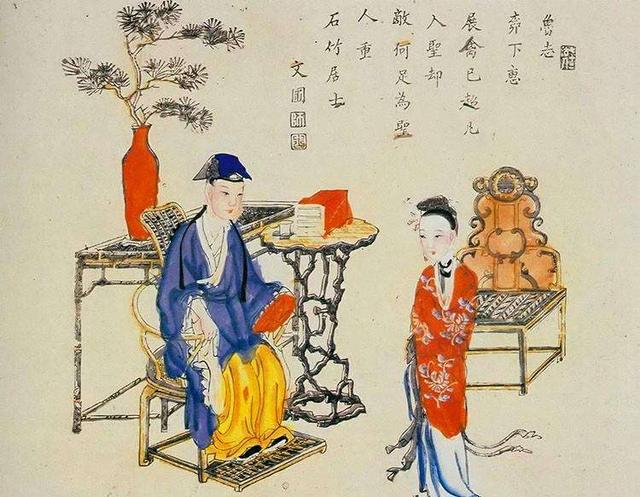 魯志
下惠
展禽已超凡
入聖却
敵何足為聖
人重
石竹居士
文圃